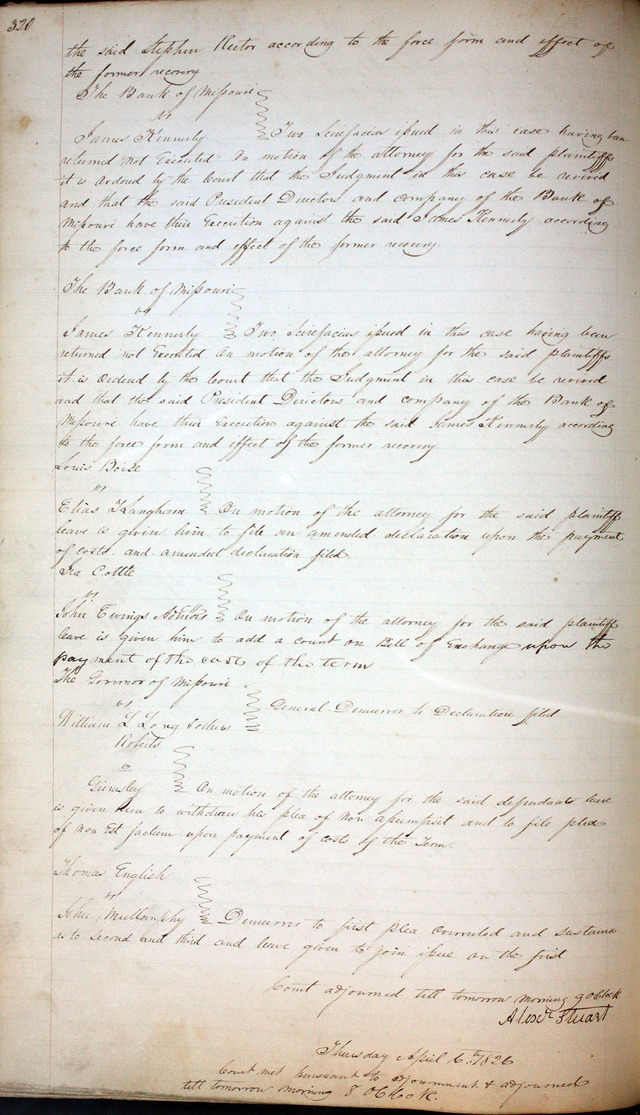 320
the said Stephen Rector according to the force form and effect of
the former recovery
The Bank of Missouri
vs
James Kennerly Two Scirefacia issued in this case having been
returned not Executed On motion of the attorney for the said plaintiffs
it is Ordered by the Court that the Judgment in this case be revived
and that the said President Directors and company of the Bank of
Missouri have their Execution against the said James Kennerly according
to the force form and effect of the former recovery.
The Bank of Missouri
vs
James Kennerly Two Scirefacias issued in this case having been
returned not Executed On motion of the attorney for the said plaintiffs
it is Ordered by the Court that the Judgment in this case be revived
and that the said President Directors and company of the Bank of
Missouri have their Execution against the said James Kennerly according
to the force form and effect of the former recovery.
Louis Boise
vs
Elias T Langham On motion of the attorney for the said plaintiff
leave is given him to file an amended declaration upon the payment
of costs. and amended declaration filed
Ira Cottle
vs
John Ewings On motion of the attorney for the said plaintiff
leave is given him to add a count on Bill of Exchange upon the
payment of the costs of the term
The Govrnor of Missouri
vs General Demurrer to Declaration filed
William L Long &others
Roberts
vs
Grimsley On motion of the attorney for the said defendants leave
is given him to withdraw his plea of Non assumpsit and to file plea
of Non Est factum upon payment of costs of the Term.
Thomas English
vs
John Mullanphy Demurrer to first plea overruled and sustained
as to second and third and leave given to join issue on the first
Court adjourned till tomorrow morning 9 oClock
Alexr. Stuart
Thursday April 6th. 1826
Court met pursuant to adjournment & adjourned
till tomorrow morning 8 OClock.